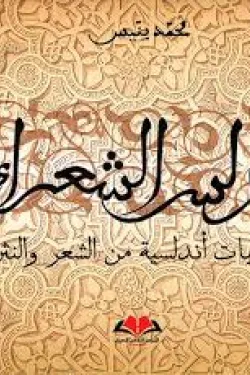 محمد بنيس
لس الشعرا
يات أندلسية من الشعر والنثر